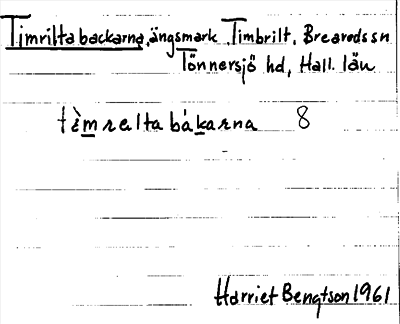 Timrilta backarna, ängsmark, Timbrilt, Brearedssn
Tönnersjö hd, Hall. län
tèmrelta bákarna 8
Harriet Bengtson 1961